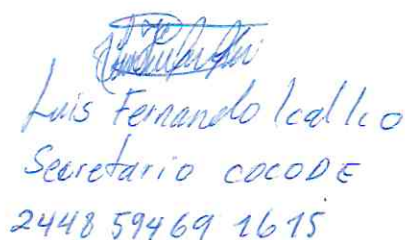 Luis Fernando
Secretario COCODE
2448 59469 1615